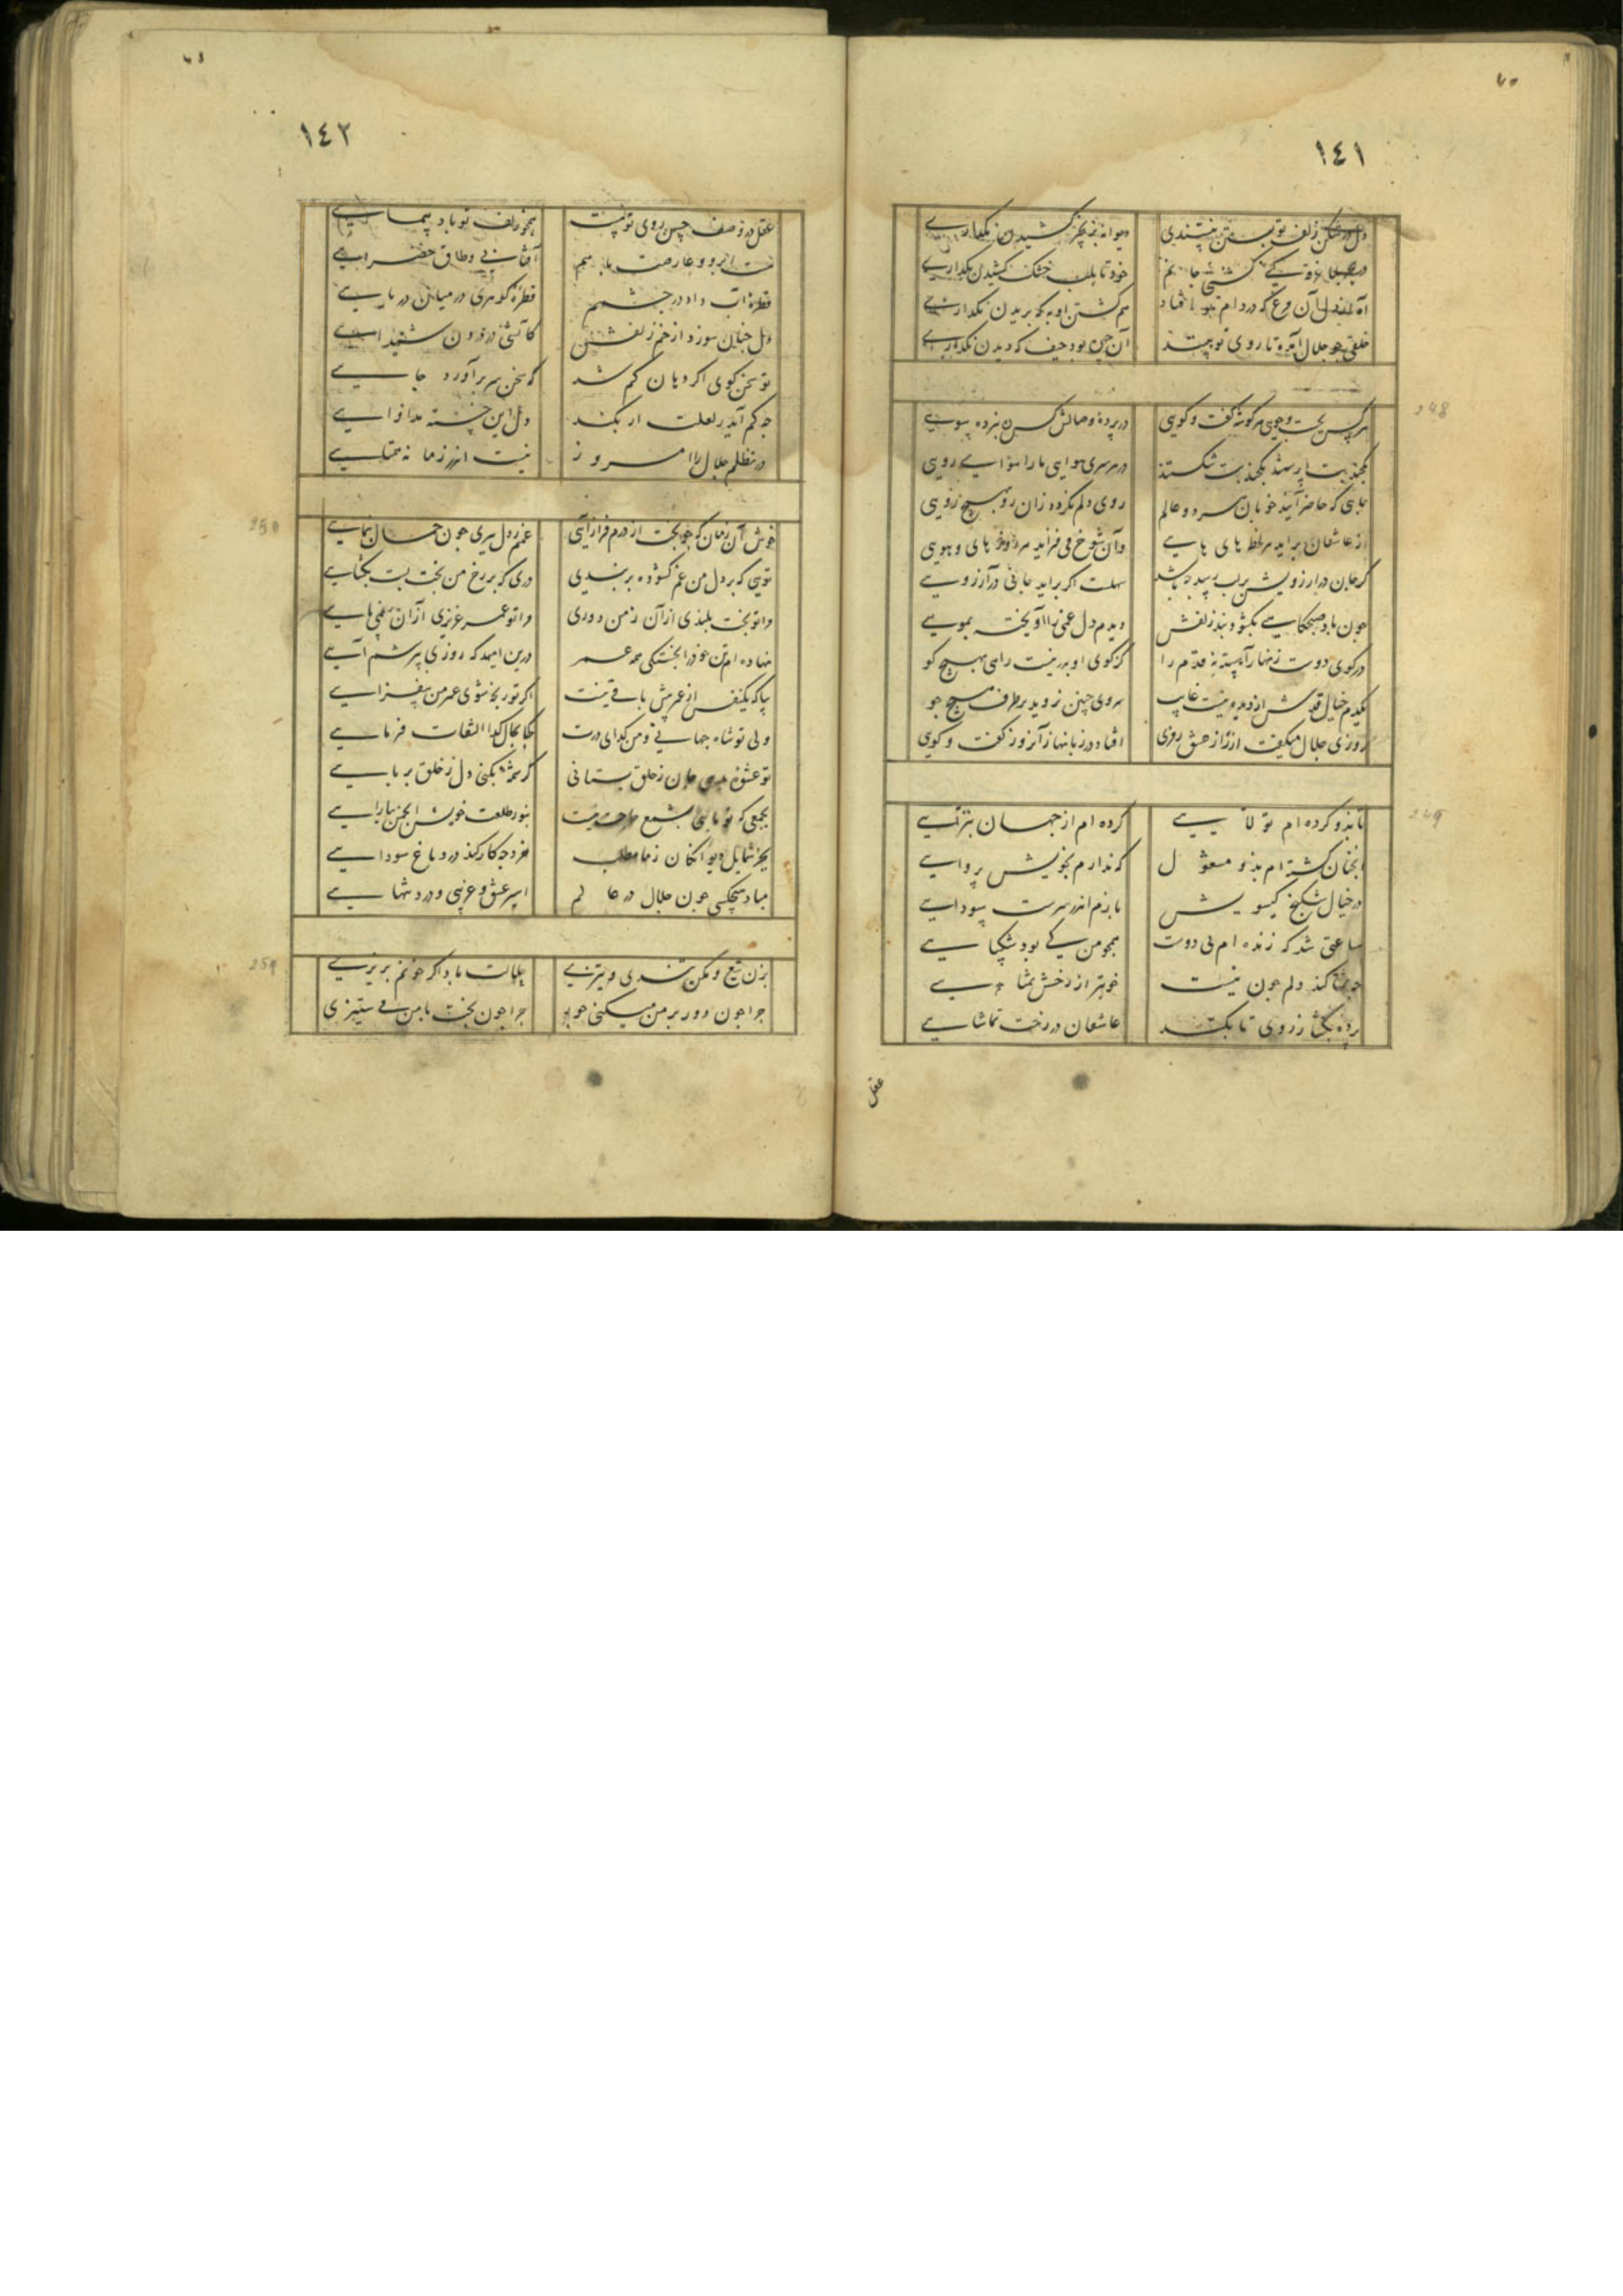 ١٤١
دل در شکن زلف تو بستن نپسندی دیوانه بزنجیر کشیدن نگذاری
خود تا بلب خشک کشیدن نگذاری
آن مرغ که در دام تو افتاد هم کشتن او به که بریدن نگذاری
خلقی چو جلال آمده تا روی تو بینند آن حسن بود حیف که دیدن نگذاری
248
هر کس بجست و جویی هر گونه گفت و گویی در پرده وصالش کس ره نبرده سویی
در هر سری هوایی ما را هوای رویی
جایی که حاضر آیند خوبان هر دو عالم روی دلم نکرده زان رو بهیچ رویی
از عاشقان براید هر لحظه های هایی وآن شوخ می فزاید هر روز های و هویی
کر جان در ارزویش بر لب رسید چه باشد سهلست اکر براید جانی در آرزویی
چون باد صبحکاهی بکشود بند زلفش دیدم دل غمین را آویخته بمویی
در کوی دوست زنهار آهسته نه قدم را کز کوی او بدر نیست راهی بهیچ کو
یکدم خیال قدش از دیده نیست غایب سروی چنین نروید بر طرف هیچ جو
روزی جلال میکفت رازی از عشق روزی افتاد در زبانها زآنروز گفت و کوی
249
تا بذو کرده ام تولایی کرده ام از جهان تبرایی
انچنان کشته ام بذو مشغول که ندارم بخویش پروایی
در خیال شکنج کیسویش بازم اندر سرست سودایی
ساعتی شد که زنده ام بی دوت همچو من کی بود شکیبایی
چه تماشا کند دلم چون نیست خوبتر از رخش تماشایی
پرده بکشا ز روی تا بکنند عاشقان در رخت تماشایی
عقل
١٤٢
عقل در وصف حسن روی تو نیست همچو زلف تو باد پیمایی
هست ابرو و عارضت با هم آفتابی و طاق خضرایی
قطره آب داد در چشمم قطره گوهری در میان دریایی
دل چنان سوزد از خم زلفش کاتشی در درون شیدایی
تو سخن کوی اکر دهان کم شد که سخن سر برآورد جایی
چه کم آید ز لعلت ار بکند دل این خسته مداوایی
در تظلم جلال را امروز نیست اندر زمانه همتایی
250
خوش آن زمان که چو بخت از درم فراز آیی غمم ز دل ببری چون جمال بنمایی
تویی که بر دل من غم کشوده بر بندی دری که بر رخ من بخت بست بکشایی
مرا تو بخت بلندی از آن ز من دوری مرا تو عمر عزیزی از آن نمی پایی
نهاده ام تن خود را بخستکی همه عمر درین امید که روزی بپرسشم آیی
بیا که یکنفس از عمر بیش باقی نیست اکر تو رنجه شوی عمر من بیفزایی
ولی تو شاه جهانی و من کدای درت کجا بحال کدا التفات فرمایی
تو عشوه می دهی جان ز خلق بستانی کرشمه بکنی دل ز خلق بربایی
بجمعی که تو باشی بشمع حاجت نیست بنور طلعت خویش انجمن بیارایی
بجز شمایل دیوانکان ز ما مطلب خرد چه کار کند در دماغ سودایی
مباد هیچکسی چون جلال در عالم اسیر عشق و غریبی و درد تنهایی
251
بزن تیغ و مکن تندی و تیزی حلالت باد اکر خونم بریزی
چرا چون دور بر من میکنی جور چرا چون بخت با من می ستیزی